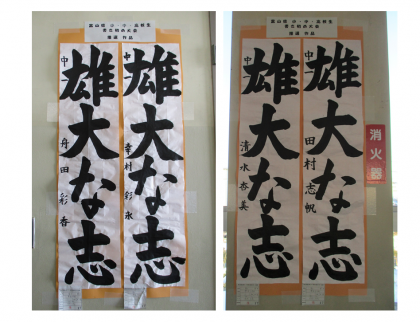 富山県 小・中・高校生
席書大会
雄大な志
中一 舟田彩香
雄大な志
中一 幸村彩永
富山県 小・中・高校生
作品
雄大な志
中一 清水杏美
雄大な志
中一 田村志帆
消火器